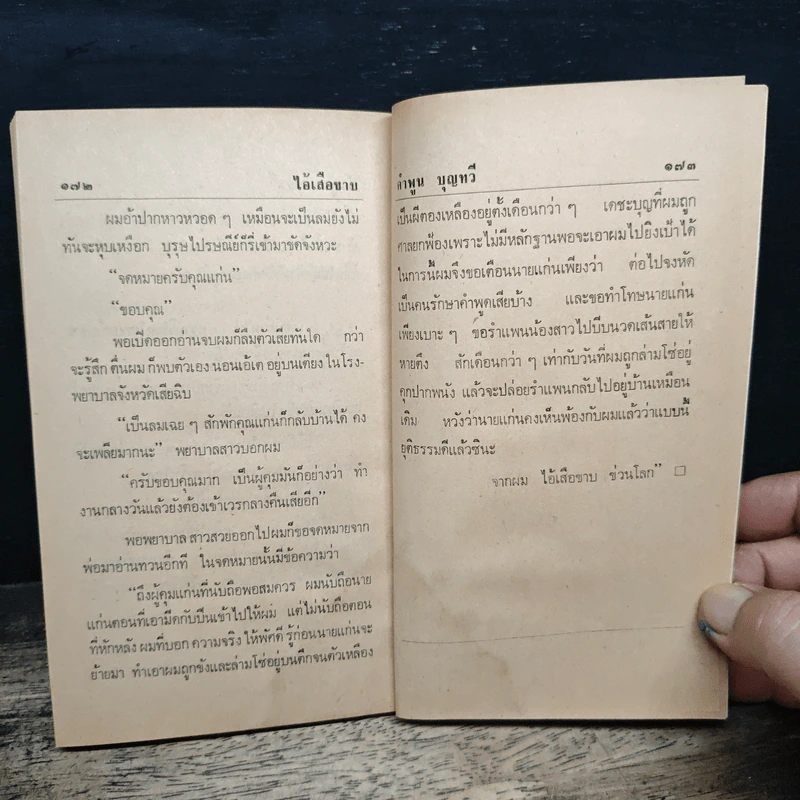 ๑๗๒ ไอ้เสือขาบ
ผมอ้าปากหาวหวอด ๆ เหมือนจะเป็นลมยังไม่
ทันจะหุบเหงือก บุรุษไปรษณีย์ก็รี่เข้ามาขัดจังหวะ
“จดหมายครับคุณแก่น”
“ขอบคุณ”
พอเปิดออกอ่านจบผมก็ลืมตัวเสียทันใด กว่า
จะรู้สึก ตื่นผม ก็พบตัวเอง นอนเอ้เต อยู่บนเตียง ในโรง-
พยาบาลจังหวัดเสียฉิบ
“เป็นลมเฉย ๆ สักพักคุณแก่นก็กลับบ้านได้ คง
จะเพลียมากนะ” พยาบาลสาวบอกผม
“ครับขอบคุณมาก เป็นผู้คุมมันก็อย่างว่า ทำ
งานกลางวันแล้วยังต้องเข้าเวรกลางคืนเสียอีก”
พอพยาบาล สาวสวยออกไปผมก็ขอจดหมายจาก
พ่อมาอ่านทวนอีกที ในจดหมายนั้นมีข้อความว่า
“ถึงผู้คุมแก่นที่นับถือพอสมควร ผมนับถือนาย
แก่นตอนที่เอามีดกับปืนเข้าไปให้ผม แต่ไม่นับถือตอน
ที่หักหลัง ผมที่บอก ความจริง ให้พัศดี รู้ก่อนนายแก่นจะ
ย้ายมา ทำเอาผมถูกขังและล่ามโซ่อยู่บนตึกจนตัวเหลือง
คำพูน บุญทวี ๑๗๓
เป็นผีตองเหลืองอยู่ตั้งเดือนกว่า ๆ เดชะบุญที่ผมถูก
ศาลยกฟ้องเพราะไม่มีหลักฐานพอจะเอาผมไปยิงเป้าได้
ในการนี้ผมจึงขอเตือนนายแก่นเพียงว่า ต่อไปจงหัด
เป็นคนรักษาคำพูดเสียบ้าง และขอทำโทษนายแก่น
เพียงเบาะ ๆ ขอรำแพนน้องสาวไปบีบนวดเส้นสายให้
หายตึง สักเดือนกว่า ๆ เท่ากับวันที่ผมถูกล่ามโซ่อยู่
คุกปากพนัง แล้วจะปล่อยรำแพนกลับไปอยู่บ้านเหมือน
เดิม หวังว่านายแก่นคงเห็นพ้องกับผมแล้วว่าแบบนี้
ยุติธรรมดีแล้วซินะ
จากผม ไอ้เสือขาบ ช่วนโลก” □